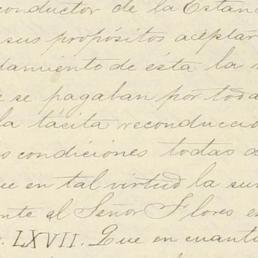 conductor de la Estan
sus propósitos aceptar
damiento de ésta la
e se pagaban por toda
la tacita reconducció
s condiciones todas a
ue en tal virtud la su
nte al Señor Flores e
LXVII. Que en cuant